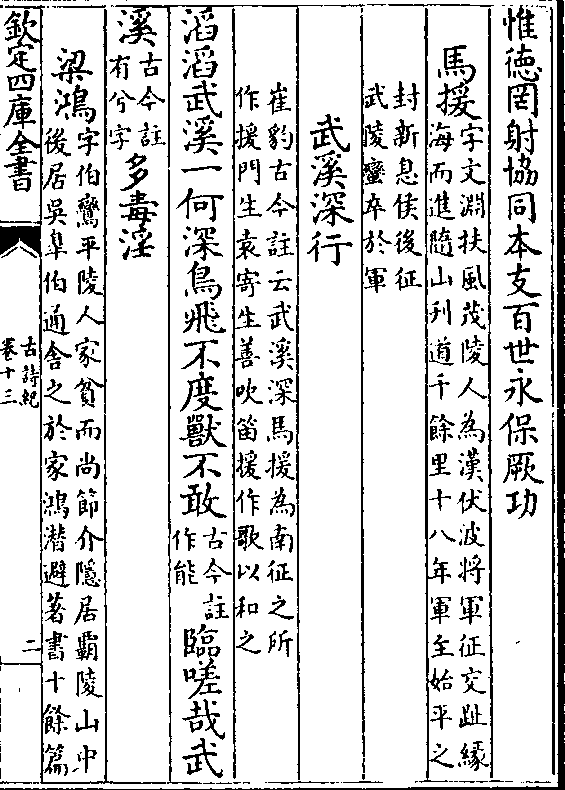 惟徳罔射協同本支百世永保厥功
馬援字文淵扶風茂陵人為漢伏波將軍征交趾縁
海而進隨山刋道千餘里十八年軍至始平之
封新息侯後征
武陵蠻卒於軍
武溪深行
崔豹古今註云武溪深馬援為南征之所
作援門生袁寄生善吹笛援作歌以和之
滔滔武溪一何深鳥飛不度獸不敢古今註作能臨嗟哉武
溪古今註有兮字多毒淫
梁鴻字伯鸞平陵人家貧而尚節介隱居霸陵山中
後居吳臯伯通舎之於家鴻潜避著書十餘篇
欽定四庫全書
古詩紀
卷十三
二